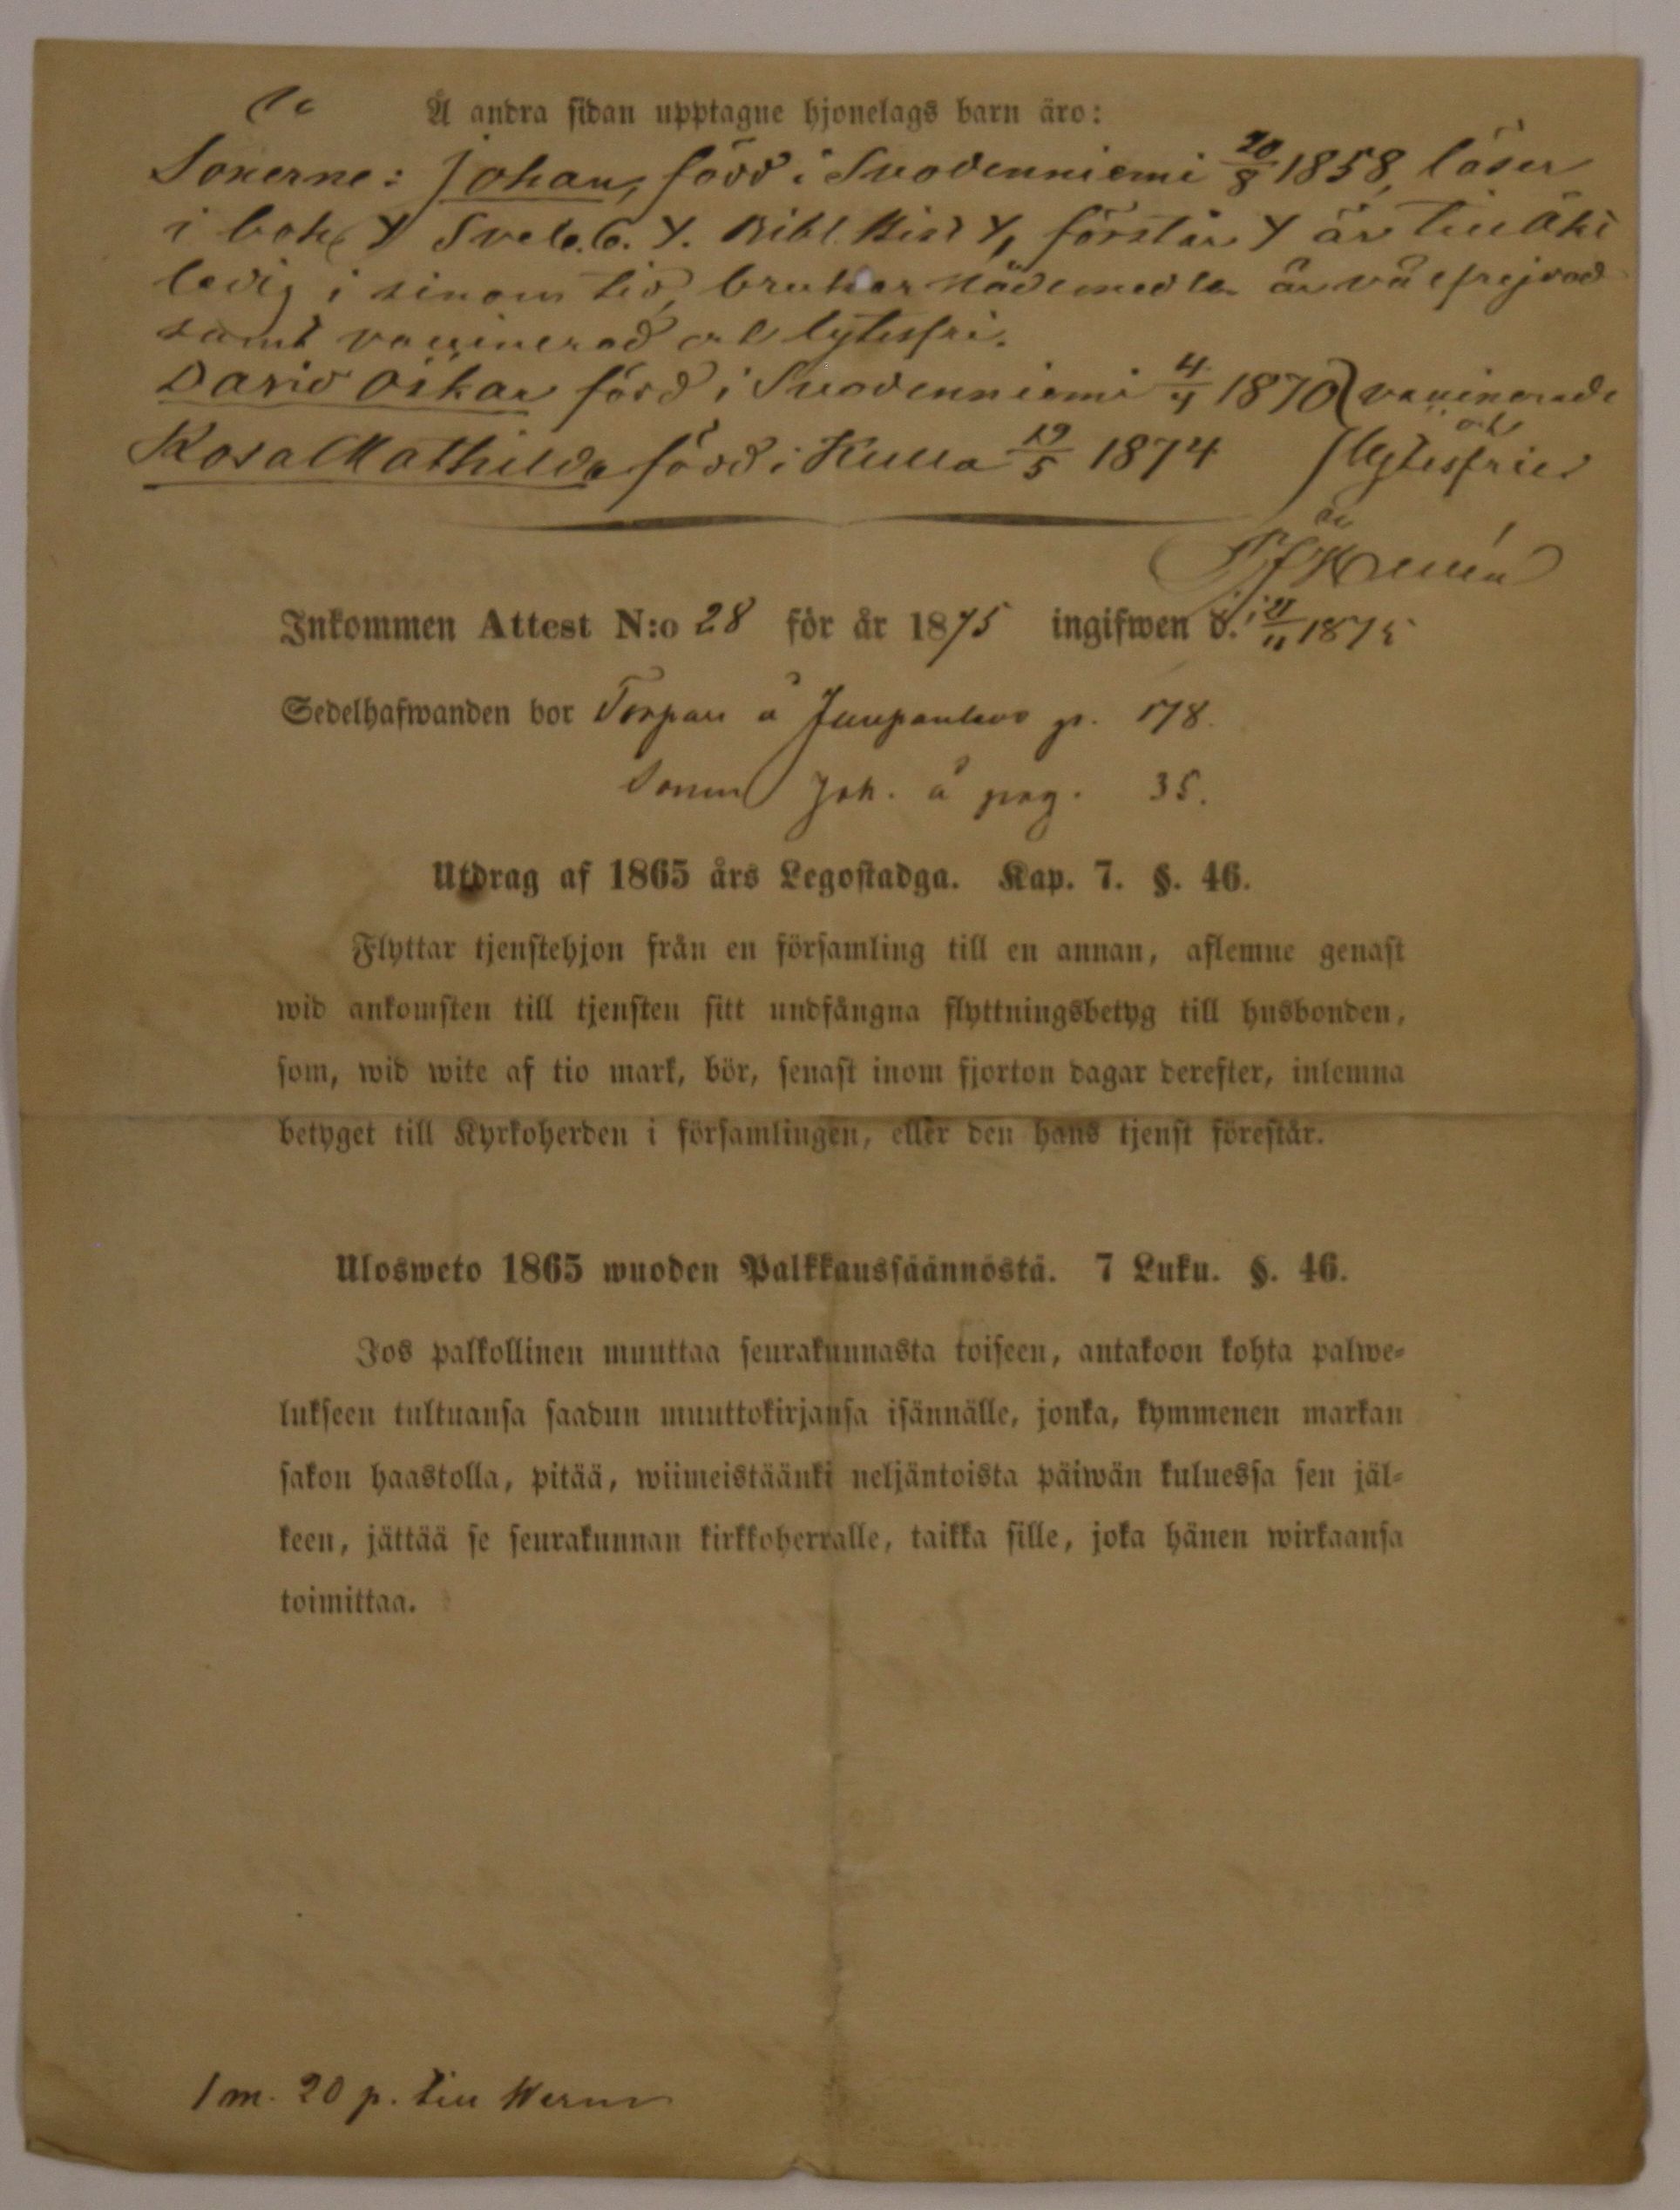 Å andra sidan upptagne hjonelags barn äro:
Sönerne: Johan, född i Suodenniemi 20/8 1858, läser
i bok, Y Sveb. 6. Y. Bibl. Hist Y, förstår Y är till äkt
ledig i sinom tid, brukar nådemedlen är välfrejdad
samt vaccinerad och lytesfri.
David Oskar född i Suodenniemi 4/4 1870 vaccinerade
Rosa Mathilda född i Kulla 19/5 1874 och lytesfrie.
Inkommen Attest N:o 28 för år 1875 ingifwen d. 1875
Sedelhafwanden bor Torpare å p. 178.
Sonen Joh. å pag. 35.
Utdrag af 1865 års Legostadga. Kap. 7. §. 46.
Flyttar tjenstehjon från en församling till en annan, aflemne genast
wid ankomsten till tjensten sitt undfångna flyttningsbetyg till husbonden,
som, wid wite af tio mark, bör, senast inom fjorton dagar derefter, inlemna
betyget till Kyrkoherden i församlingen, eller den hans tjenst förestår.
Ulosweto 1865 wuoden Palkkaussäännöstä. 7 Luku. §. 46.
Jos palkollinen muuttaa seurakunnasta toiseen, antakoon kohta palwe-
lukseen tultuansa saadun muuttokirjansa isännälle, jonka, kymmenen markan
sakon haastolla, pitää, wiimeistäänki neljäntoista päiwän kuluessa sen jäl-
keen, jättää se seurakunnan kirkkoherralle, taikka sille, joka hänen wirkaansa
toimittaa.
1 m. 20 p. till